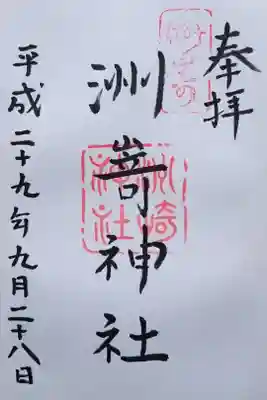 奉拝
洲嵜神社
洲崎
神社
平成二十九年九月二十八日